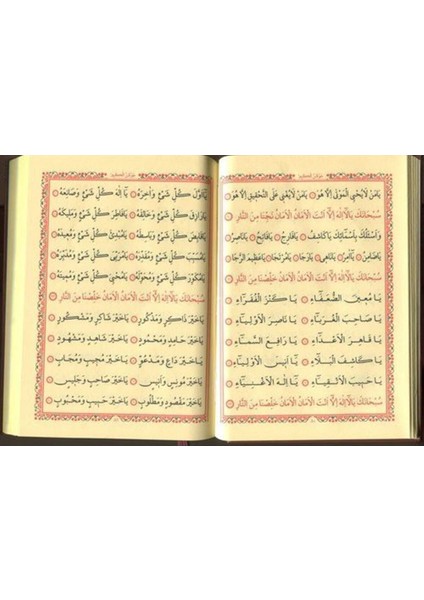 جوشن الكبير
يَا مَنْ لَا يُحْيِي الْمَوْتَى اِلَّا هُوَ ۞ يَا مَنْ لَا يُغْنِي عَلَى التَّحْقِيقِ اِلَّا هُوَ
سُبْحَانَكَ يَا لَٓا اِلٰهَ اِلَّٓا اَنْتَ الْاَمَانُ الْاَمَانُ نَجِّنَا مِنَ النَّارِ
وَاَسْئَلُكَ بِاَسْمَٓائِكَ يَا كَاشِفُ ۞ يَا فَارِجُ ۞ يَا فَاتِحُ ۞ يَا نَاصِرُ
يَا ضَامِنُ ۞ يَٓا اٰمِرُ ۞ يَا نَاهِي ۞ يَا رَجَا ۞ يَا مُرْتَجَا ۞ يَا عَظِيمَ الرَّجَا
سُبْحَانَكَ يَا لَٓا اِلٰهَ اِلَّٓا اَنْتَ الْاَمَانُ الْاَمَانُ خَلِّصْنَا مِنَ النَّارِ
يَا مُعِينَ الضُّعَفَٓاءِ ۞ يَا كَنْزَ الْفُقَرَٓاءِ
يَا صَاحِبَ الْغُرَبَٓاءِ ۞ يَا نَاصِرَ الْاَوْلِيَٓاءِ
يَا قَاهِرَ الْاَعْدَٓاءِ ۞ يَا رَافِعَ السَّمَٓاءِ
يَا كَاشِفَ الْبَلَٓاءِ ۞ يَٓا اَنِيسَ الْاَوْلِيَٓاءِ
يَا حَبِيبَ الْاَتْقِيَٓاءِ ۞ يَٓا اِلٰهَ الْاَغْنِيَٓاءِ
سُبْحَانَكَ يَا لَٓا اِلٰهَ اِلَّٓا اَنْتَ الْاَمَانُ الْاَمَانُ خَلِّصْنَا مِنَ النَّارِ
جوشن الكبير
يَٓا اَوَّلَ كُلِّ شَيْءٍ وَاٰخِرَهُ ۞ يَٓا اِلٰهَ كُلِّ شَيْءٍ وَصَانِعَهُ
يَا رَازِقَ كُلِّ شَيْءٍ وَخَالِقَهُ ۞ يَا فَاطِرَ كُلِّ شَيْءٍ وَمَلِيكَهُ
يَا قَابِضَ كُلِّ شَيْءٍ وَبَاسِطَهُ ۞ يَا مُبْدِئَ كُلِّ شَيْءٍ وَمُعِيدَهُ
يَا مُسَبِّبَ كُلِّ شَيْءٍ وَمُقَدِّرَهُ ۞ يَا مُرَبِّيَ كُلِّ شَيْءٍ وَمُدَبِّرَهُ
يَا مُكَوِّرَ كُلِّ شَيْءٍ وَمُحَوِّلَهُ ۞ يَا مُحْيِيَ كُلِّ شَيْءٍ وَمُمِيتَهُ
سُبْحَانَكَ يَا لَٓا اِلٰهَ اِلَّٓا اَنْتَ الْاَمَانُ الْاَمَانُ خَلِّصْنَا مِنَ النَّارِ
يَا خَيْرَ ذَاكِرٍ وَمَذْكُورٍ ۞ يَا خَيْرَ شَاكِرٍ وَمَشْكُورٍ
يَا خَيْرَ حَامِدٍ وَمَحْمُودٍ ۞ يَا خَيْرَ شَاهِدٍ وَمَشْهُودٍ
يَا خَيْرَ دَاعٍ وَمَدْعُوٍّ ۞ يَا خَيْرَ مُجِيبٍ وَمُجَابٍ
يَا خَيْرَ مُونِسٍ وَاَنِيسٍ ۞ يَا خَيْرَ صَاحِبٍ وَجَلِيسٍ
يَا خَيْرَ مَقْصُودٍ وَمَطْلُوبٍ ۞ يَا خَيْرَ حَبِيبٍ وَمَحْبُوبٍ